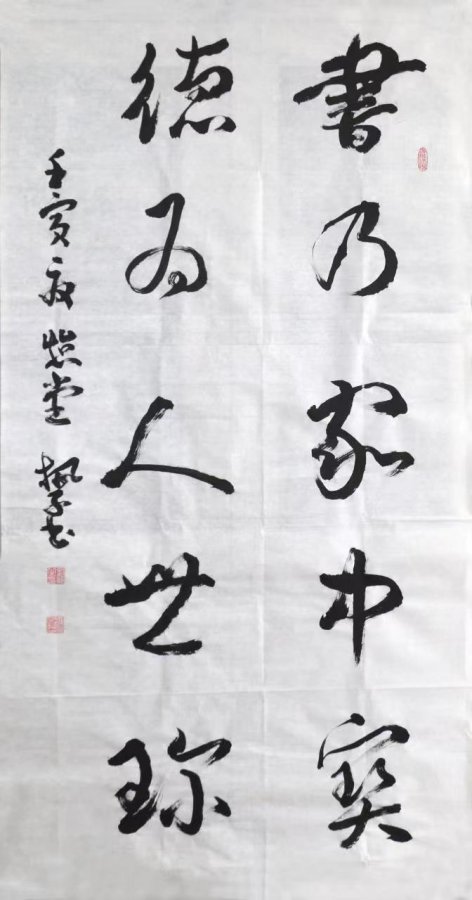 書乃家中寶
德為人世珍
壬寅 堂 楓子书